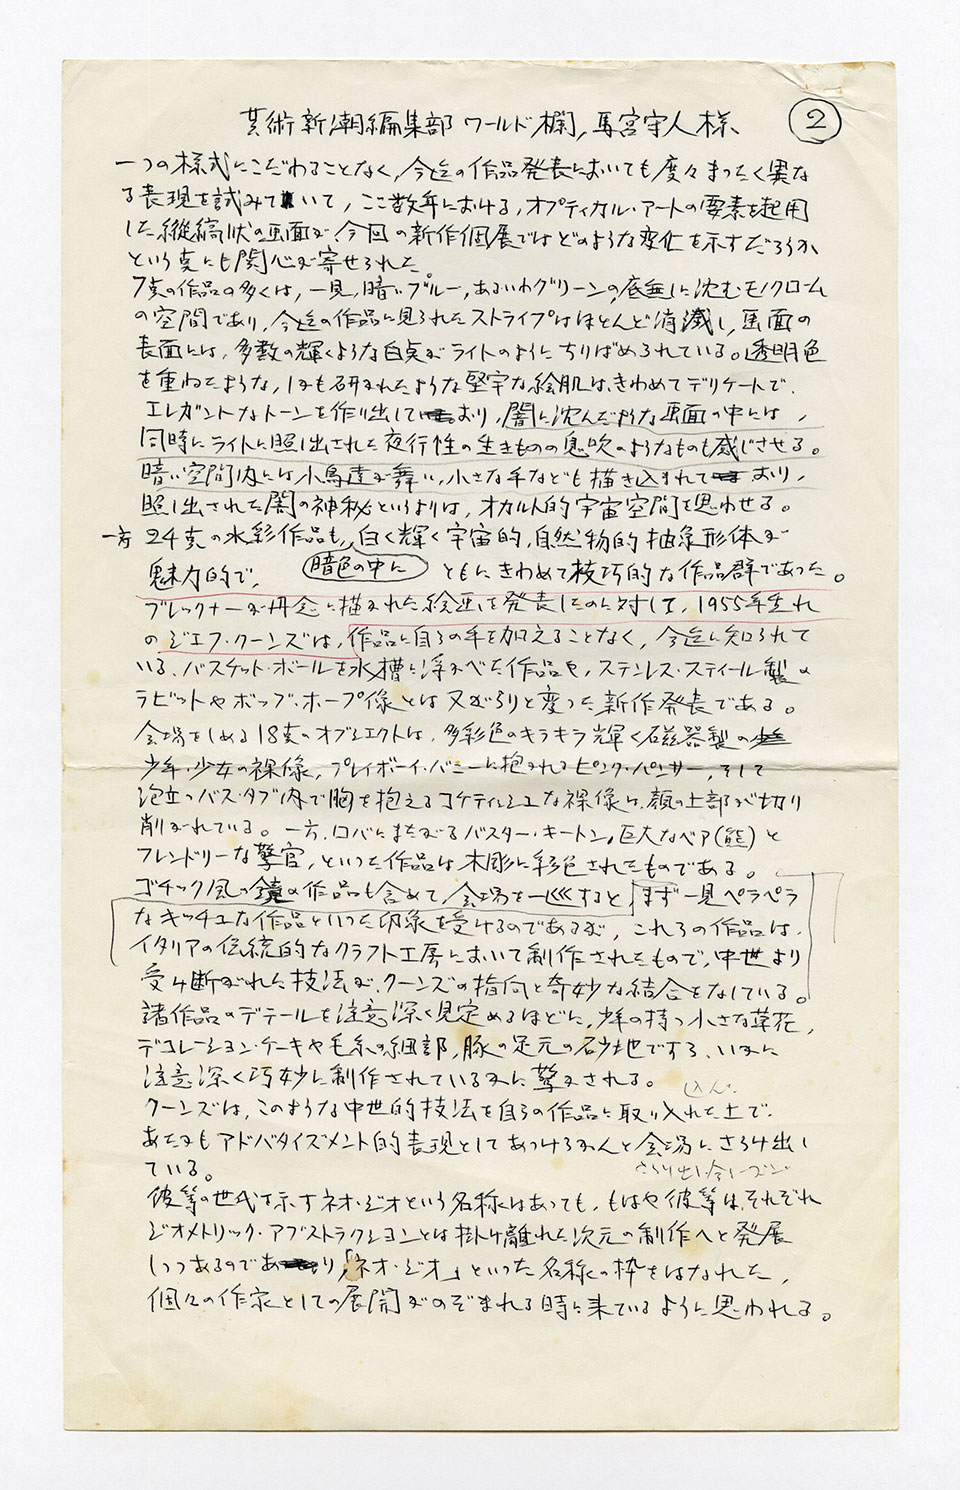 芸術新潮編集部 ワールド欄, 馬宮守人様、 ②
一つの様式にこだわることなく、今迄の作品発表においても度々まったく異な
る表現を試みていて、ここ数年における、オプティカル・アートの要素を起用
した縦縞状の画面が、今回の新作個展ではどのような変化を示すだろうか
という点にも関心が寄せられた。
7点の作品の多くは、一見、暗いブルー、あるいわグリーンの底無しに沈むモノクローム
の空間であり、今迄の作品に見られたストライプはほとんど消滅し、画面の
表面には、多数の輝くような白点がライトのようにちりばめられている。透明色
を重ねたような、しかも研かれたような堅牢な絵肌は、きわめてデリケートで、
エレガントなトーンを作り出しており、闇に沈んだような画面の中には、
同時にライトに照し出された夜行性の生きものの息吹のようなものも感じさせる。
暗い空間内には小鳥達が舞い、小さな手なども描き込まれており、
照し出された闇の神秘というよりは、オカルト的宇宙空間を思わせる。
一方 24点の水彩作品も、白く輝く宇宙的、自然物的抽象形体が
魅力的で、 暗色の中に ともにきわめて技巧的な作品群であった。
ブレックナーが丹念に描かれた絵画を発表したのに対して、1955年生れ
のジェフ・クーンズは、作品に自らの手を加えることなく、今迄に知られて
いる、バスケット・ボールを水槽に浮かべた作品や、ステンレス・スティール製の
ラビットやボップ・ホープ像とは又がらりと変った新作発表である。
会場をしめる18点のオブジェクトは、多彩色のキラキラ輝く磁器製の
少年・少女の裸像、プレイボーイ・バニーに抱かれるピンク・パンサー、そして
泡立つバス・タブ内で胸を抱えるコケティシュな裸像は、顔の上部が切り
削がれている。一方、ロバにまたがるバスター・キートン、巨大なベア(熊)と
フレンドリーな警官、といった作品は木彫に彩色されたものである。
ゴチック風の鏡の作品も含めて、会場を一巡すると、まず一見ペラペラ
なキッチュな作品といった印象を受けるのであるが、これらの作品は、
イタリアの伝統的なクラフト工房において制作されたもので、中世より
受け断がれた技法が、クーンズの指向と奇妙な結合をなしている。
諸作品のデテールを注意深く見定めるほどに、少年の持つ小さな草花、
デコレーション・ケーキや毛糸の細部、豚の足元の砂地ですら、いかに
注意深く巧妙に制作されているかに驚かされる。
込んだ
クーンズは、このような中世的技法を自らの作品に取り入れた上で、
あたかもアドバタイズメント的表現としてあっけらかんと会場にさらけ出し
ている。
彼等の世代を示すネオ・ジオという名称はあっても、もはや彼等は、それぞれ
ジオメトリック・アブストラクションとは掛け離れた次元の制作へと発展
しつつあるのであり、「ネオ・ジオ」といった名称の枠をはなれた、
個々の作家としての展開がのぞまれる時に来ているように思われる。